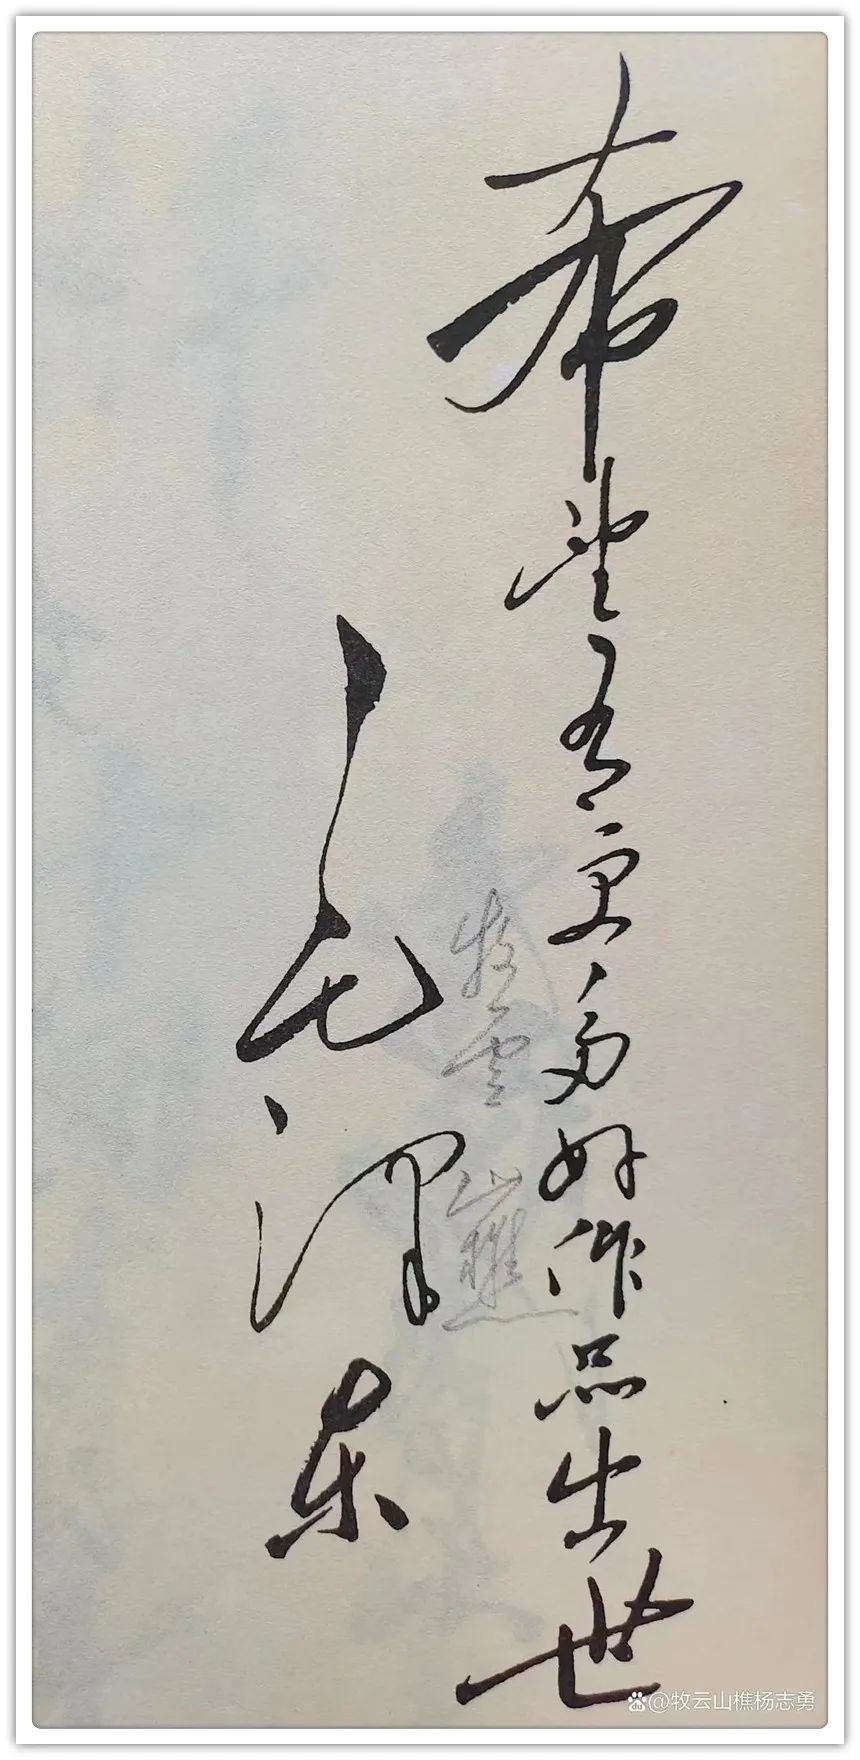 希望有更多好作品出世
毛泽东
牧雲山樵
du@牧云山樵杨志勇